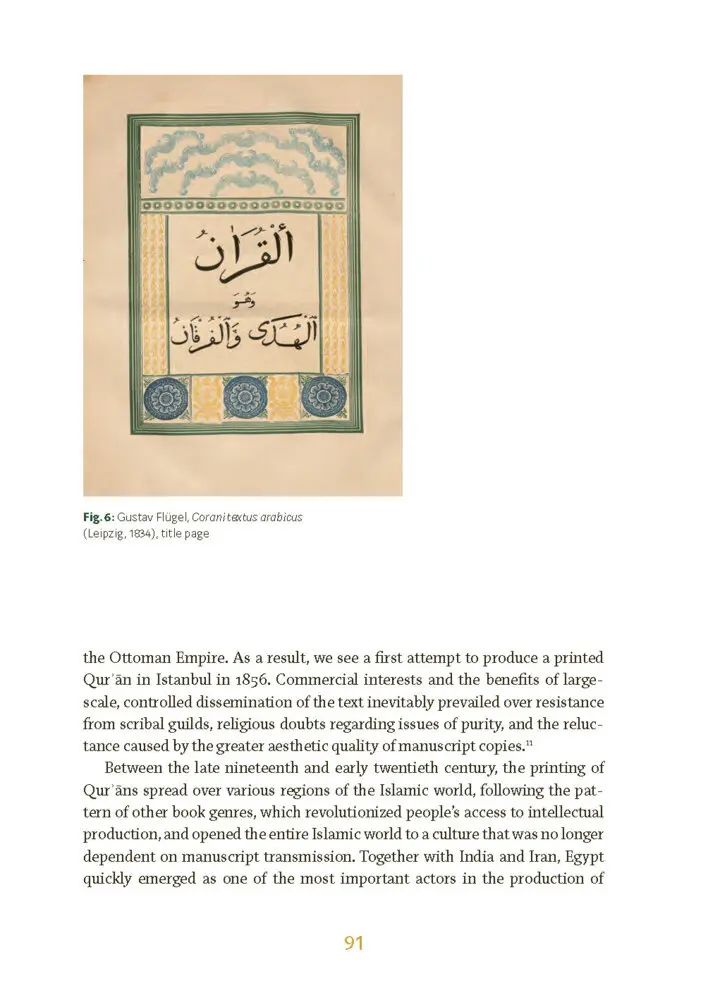 أَلْقُرْاٰنُ
وَهُوَ
اَلْهُدَى وَٱلْفُرْقَانُ
Fig. 6: Gustav Flügel, Corani textus arabicus
(Leipzig, 1834), title page
the Ottoman Empire. As a result, we see a first attempt to produce a printed
Qurʾān in Istanbul in 1856. Commercial interests and the benefits of large-
scale, controlled dissemination of the text inevitably prevailed over resistance
from scribal guilds, religious doubts regarding issues of purity, and the reluc-
tance caused by the greater aesthetic quality of manuscript copies.¹¹
Between the late nineteenth and early twentieth century, the printing of
Qurʾāns spread over various regions of the Islamic world, following the pat-
tern of other book genres, which revolutionized people’s access to intellectual
production, and opened the entire Islamic world to a culture that was no longer
dependent on manuscript transmission. Together with India and Iran, Egypt
quickly emerged as one of the most important actors in the production of
91